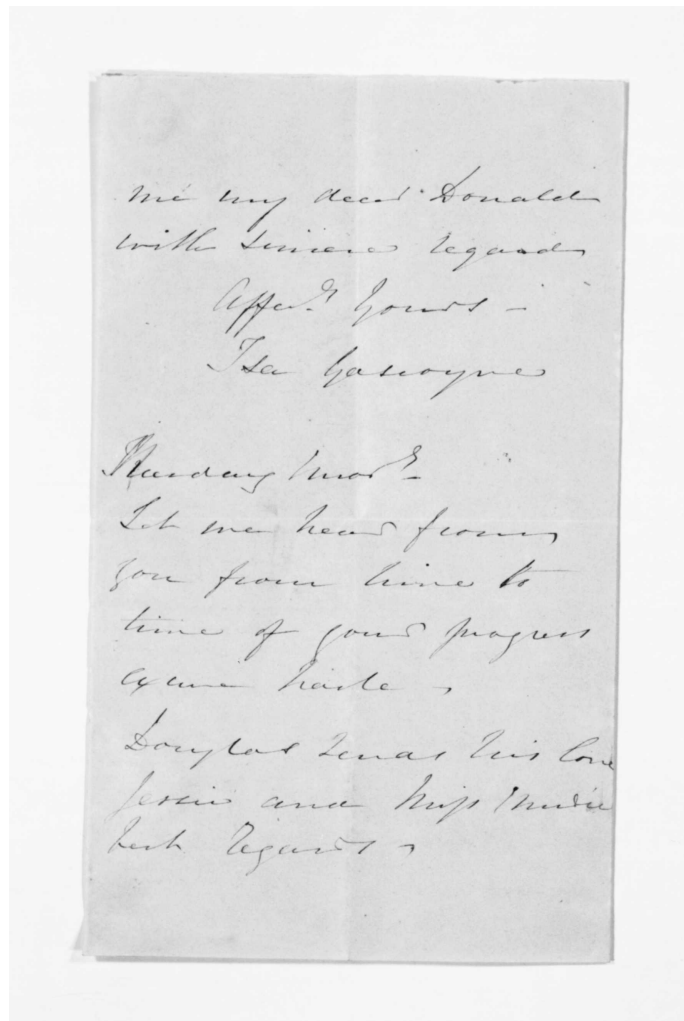 me my dear Donald
with sincere regards
Affec.ly Yours –
Isa Gascoyne
Let me hear from
you from time to
time of your progress
excuse haste
Douglas sends his love
Jessie and Miss
best regards